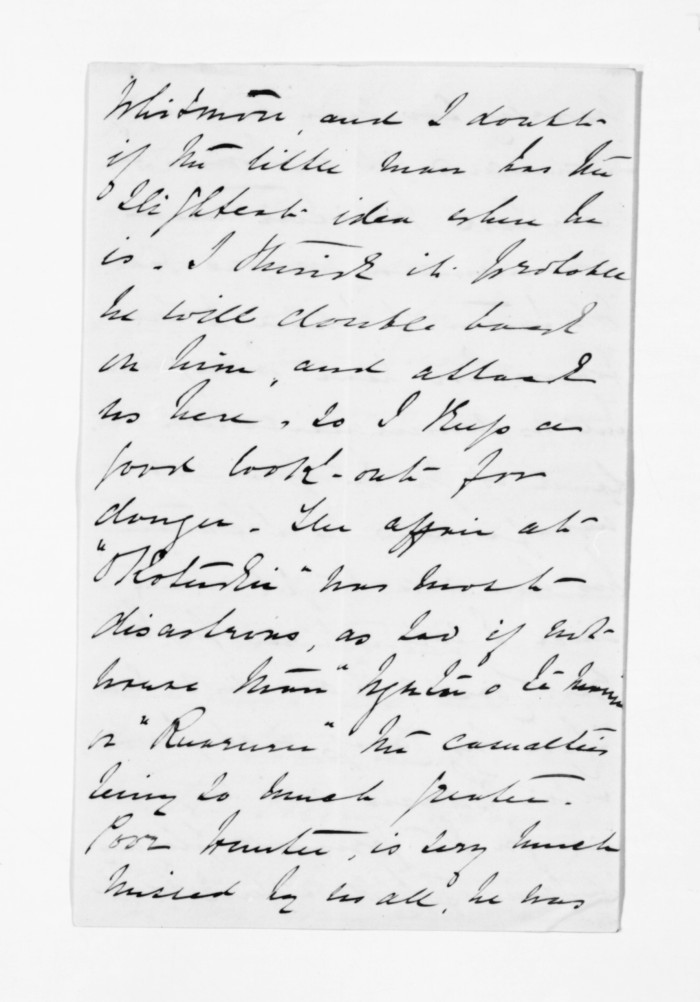 Whitmore, and I doubt
if the little man has the
slightest idea where he
is. I think it probable
he will double back
on him, and attack
us here. So I keep a
good look-out for
danger. The affair at
"Okotuku" was most
disastrous, as bad if not
worse than "Ngutu o te manu
or "Ruaruru" the casualties
being so much greater.
Poor Hunter, is very much
missed by us all, he was